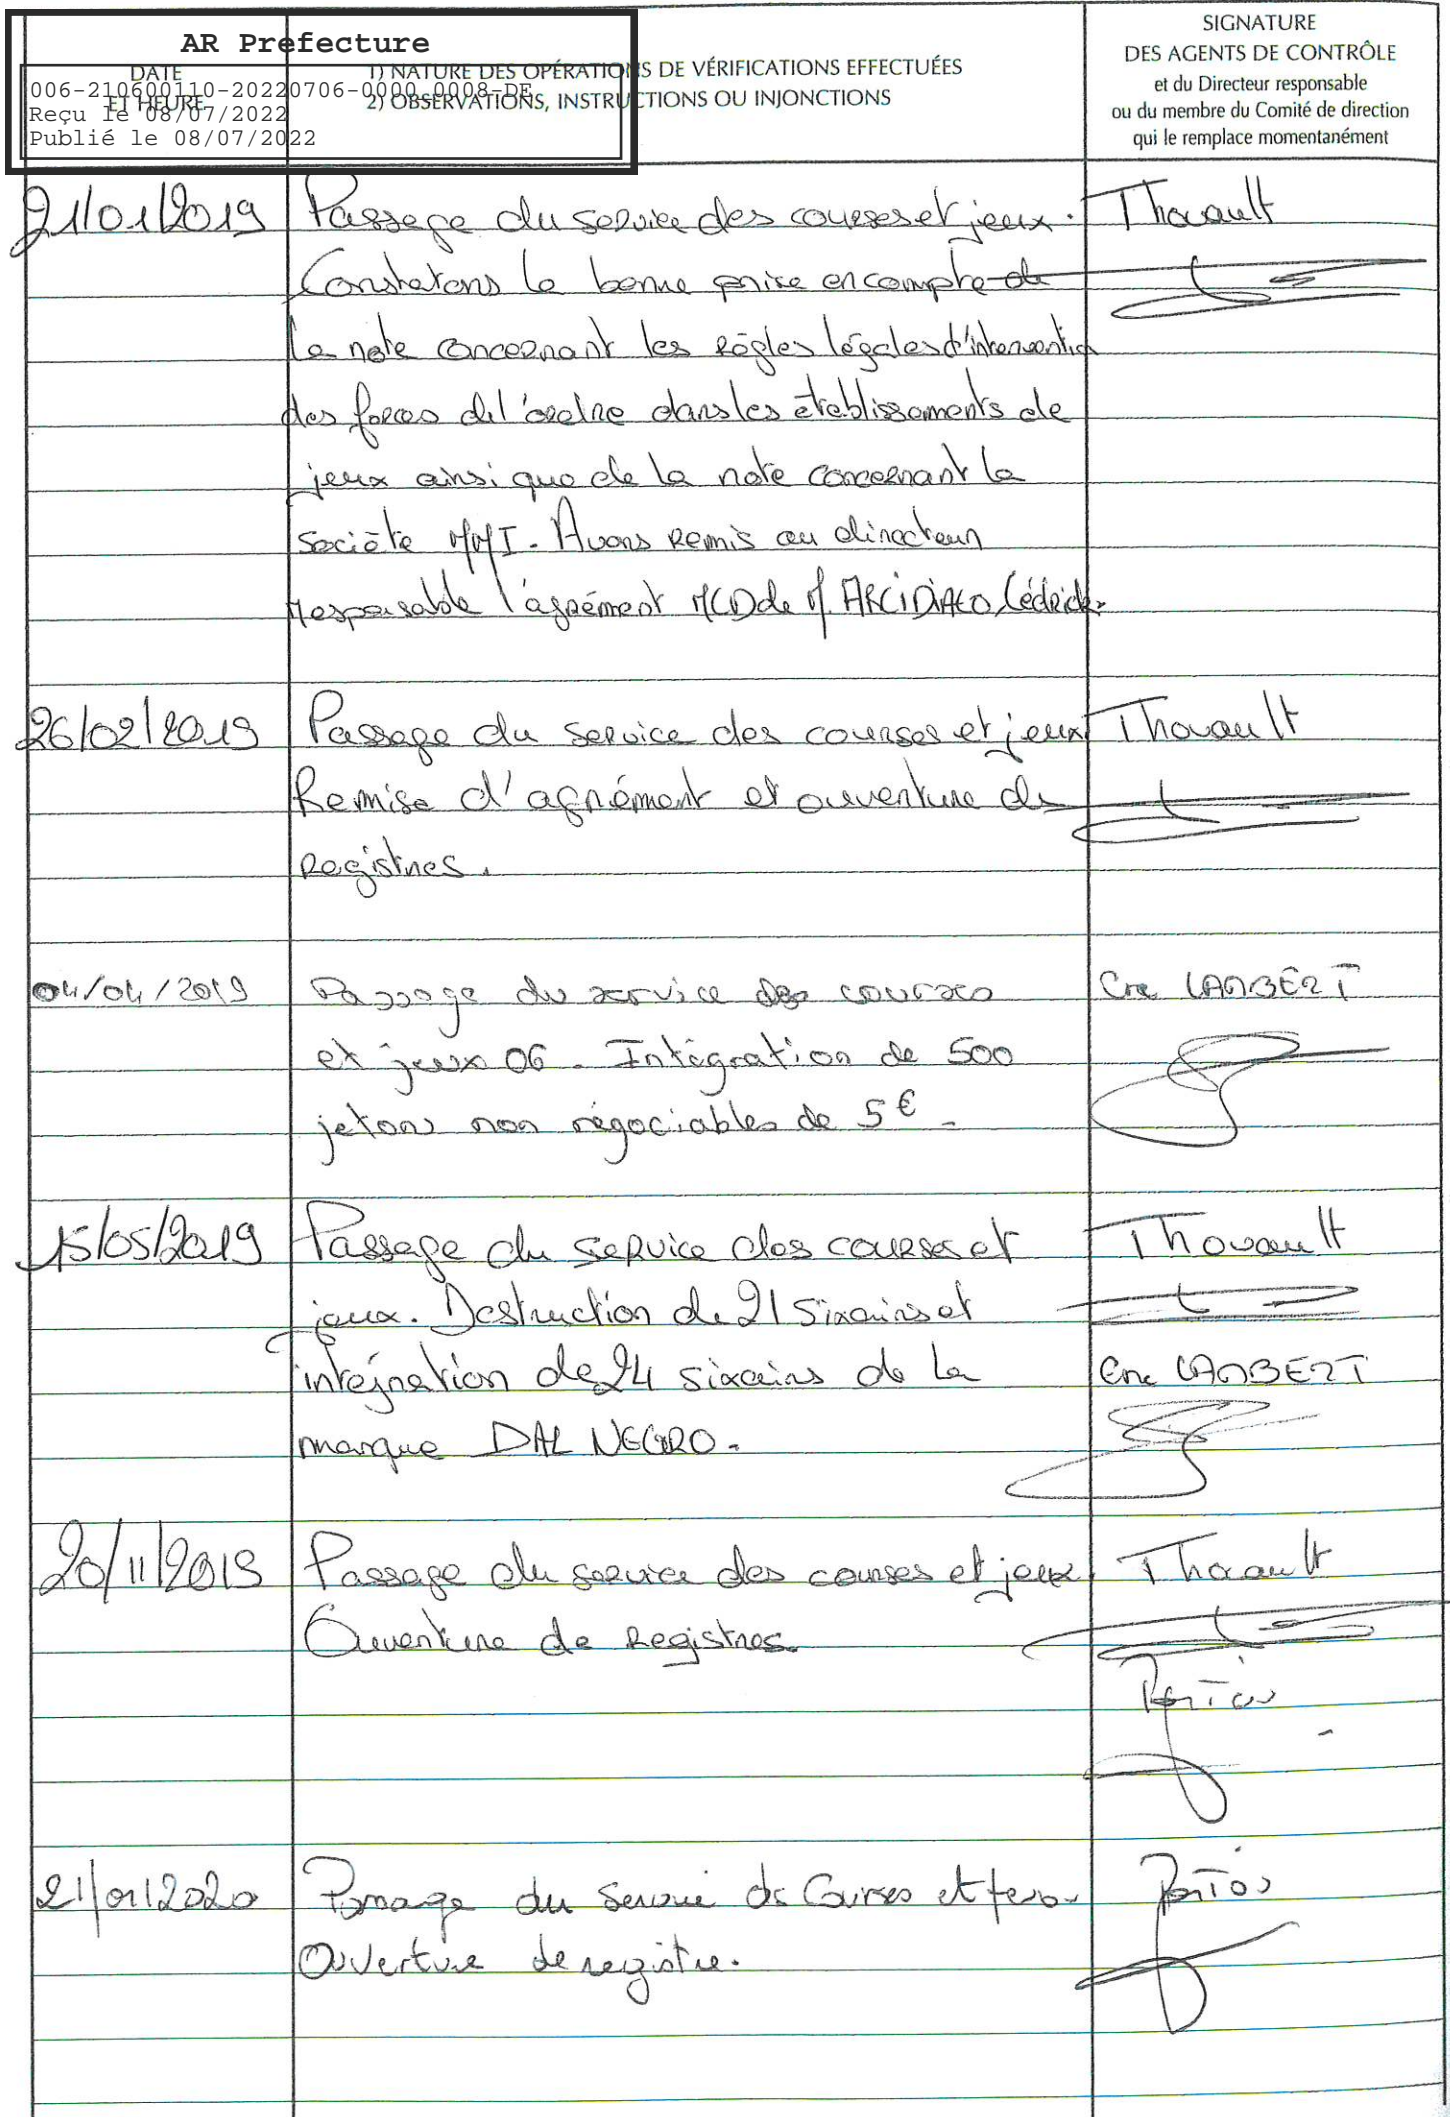 AR Prefecture
006-210600110-20220706-0000_0008-DE
Reçu le 08/07/2022
Publié le 08/07/2022
DATE
ET HEURE
1) NATURE DES OPÉRATIONS DE VÉRIFICATIONS EFFECTUÉES
2) OBSERVATIONS, INSTRUCTIONS OU INJONCTIONS
SIGNATURE
DES AGENTS DE CONTRÔLE
et du Directeur responsable
ou du membre du Comité de direction
qui le remplace momentanément
21/01/2019 Passage du service des courses et jeux. Thouault
Constatons la bonne prise en compte de
la note concernant les règles légales d'intervention
des forces de l'ordre dans les établissements de
jeux ainsi que de la note concernant la
société MMI. Avons remis au directeur
responsable l'agrément MCD de M. ARCIDIACO Cédrick.
26/02/2019 Passage du service des courses et jeux Thouault
Remise d'agrément et ouverture de
registres.
04/04/2019 Passage du service des courses Cne LAMBERT
et jeux 06. Intégration de 500
jetons non négociables de 5€.
15/05/2019 Passage du service des courses et Thouault
jeux. Destruction de 21 sixains et
intégration de 24 sixains de la Cne LAMBERT
marque DAL NEGRO.
20/11/2019 Passage du service des courses et jeux Thouault
Ouverture de registres.
21/01/2020 Passage du service des Courses et Jeux.
Ouverture de registre.